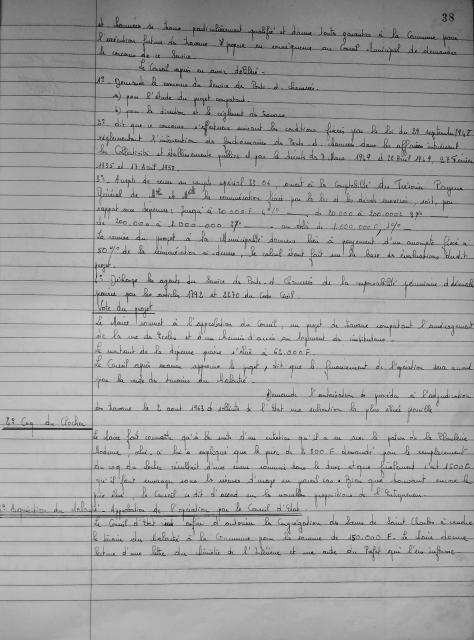 38
et Chaussées se trouve particulièrement qualifié et donne toute garantie à la Commune pour
l'exécution future des travaux. Il propose en conséquence au Conseil Municipal de demander
le concours de ce Service.
Le Conseil après en avoir délibéré -
1° Demande le concours du Service des Ponts et chaussées.
a) pour l'étude du projet comportant
b) pour la direction et le règlement des travaux
2° dit que ce concours s'effectuera suivant les conditions fixées par la loi du 29 septembre 1948
réglementant l'intervention des fonctionnaires des Ponts et chaussées dans les affaires intéressant
les Collectivités et établissements publics et par les décrets des 7 Mars 1949
et 17 Août 1959.
3° Accepte de verser au compte spécial ouvert à la Comptabilité du Trésorier Payeur
Général de la rémunération fixée par la loi et les décrets susvisés, soit, par
rapport aux dépenses: jusqu'à 4 % de
de 200.000 à 1.000.000 au delà de 1.000.000 F,
La remise du projet à la Municipalité donnera lieu à payement d'un acompte fixé à
50 % de la rémunération le calcul étant fait sur la base des évaluations dudit
projet.
4° Décharge les agents du Service des Ponts et Chaussées de la responsabilité pécuniaire décennale
prévue par les articles 1792 et 2270 du Code Civil
Vote du projet
Le Maire soumet à l'approbation du Conseil, un projet de travaux comportant l'aménagement
de la rue des Ecoles et d'un chemin d'accès au logement des instituteurs.
Le montant de la dépense prévue s'élève à 62.000 F.
Le Conseil après examen approuve le projet, dit que le financement de l'opération sera assuré
par la vente des terrains du Malarté.
Demande l'autorisation de procéder à l'adjudication
des travaux le 2 août 1963 et sollicite de l'Etat une subvention la plus élevée possible
Coq du Clocher
Le Maire fait connaître qu'à la suite d'un entretien qu'il a eu avec le patron de la Plomberie
Moderne, celui-ci lui a expliqué que le prix de demandé pour le remplacement
du coq du clocher résultait d'une erreur et que finalement c'est 1500 F
qu'il faut envisager sous la réserve d'usage en pareil cas. Bien que trouvant encore le
prix élevé, le Conseil se dit d'accord sur la nouvelle proposition de l'Entrepreneur.
Acquisition du Malarté - Approbation de l'opération par le Conseil d'Etat
Le Conseil d'Etat vient enfin d'autoriser la Congrégation des Sœurs de Saint Charles à vendre
le terrain du Malarté à la Commune pour la somme de 150.000 F. Le Maire donne
lecture d'une lettre du Ministère de l'Intérieur et une note du Préfet qui l'en informe